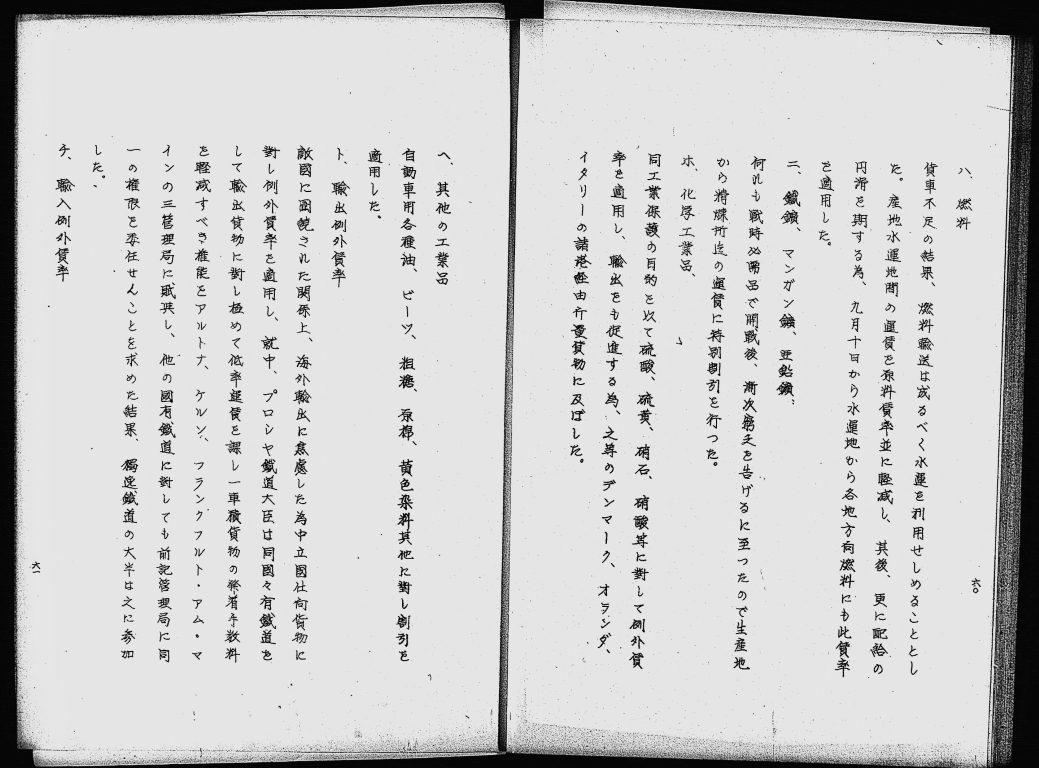 ハ、燃料
貨車不足の結果、燃料輸送は成るべく水運を利用せしめることとし
た。産地水運地間の運賃を原料賃率並に軽減し、其後、更に配給の
円滑を期する為、九月十日から水運地から各地方向燃料にも此賃率
を適用した。
二、鐵鑛、マンガン鑛、亜鉛鑛、
何れも戰時必需品で開戰後、漸次 を告げるに至つたので生産地
から精煉所迄の運賃に特別割引を行つた。
ホ、化学工業品、
同工業保護の目的を以て硫酸、硫黄、硝石、硝酸等に對して例外賃
率を適用し、輸出をも促進する為、之等のデンマーク、オランダ、
イタリーの諸港経由 量貨物に及ぼした。
六〇
ヘ、其他の工業品
自動車用各種油、ビーツ、粗糖、原棉、黄色染料其他に對し割引を
適用した。
ト、輸出例外賃率
敵國に囲繞された関係上、海外輸出に焦慮した為中立國仕向貨物に
對し例外賃率を適用し、就中、プロシヤ鐵道大臣は同國々有鐵道を
して輸出貨物に對し極めて低率運賃を課し一車積貨物の発着手数料
を軽減すべき権能をアルトナ、ケルン、フランクフルト・アム・マ
インの三管理局に賦與し、他の國有鐵道に對しても前記管理局に同
一の権限を委任せんことを求めた結果、獨逸鐵道の大半は之に参加
した。
チ、輸入例外賃率
六一